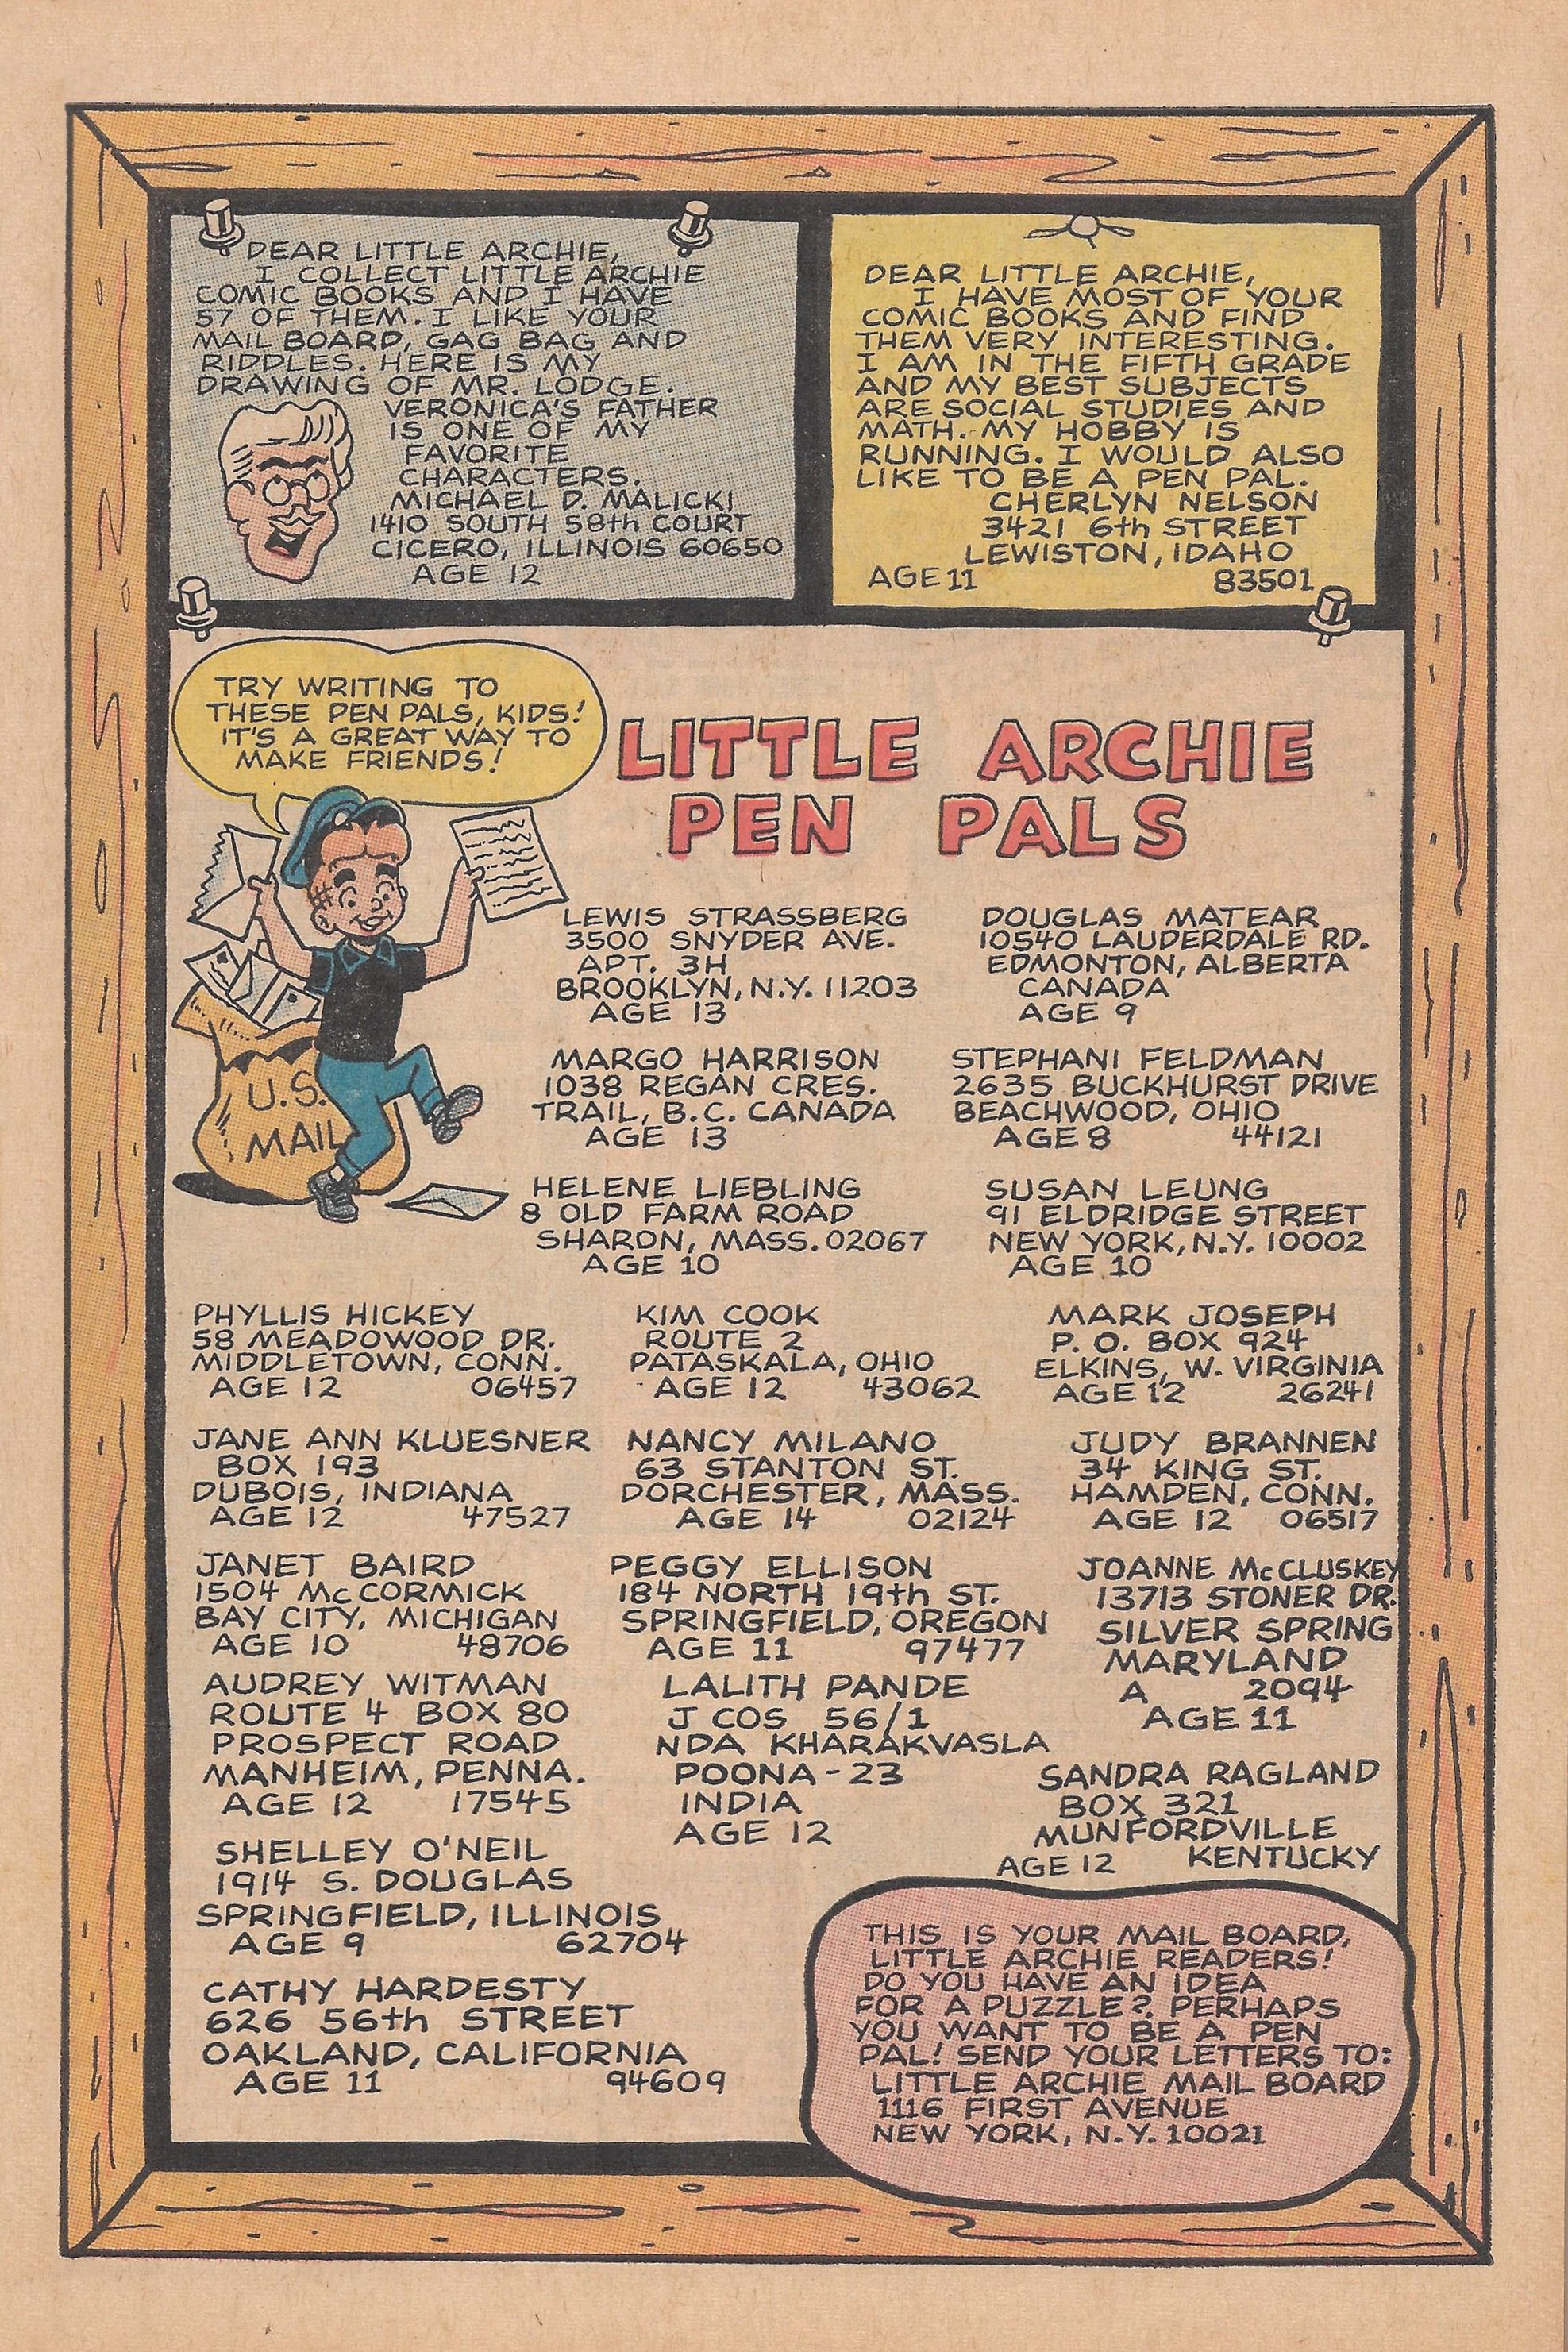 DEAR LITTLE ARCHIE,
I COLLECT LITTLE ARCHIE
COMIC BOOKS AND I HAVE
57 OF THEM. I LIKE YOUR
MAIL BOARD, GAG BAG AND
RIDDLES. HERE IS MY
DRAWING OF MR. LODGE.
VERONICA'S FATHER
IS ONE OF MY
FAVORITE
CHARACTERS.
MICHAEL D. MALICKI
1410 SOUTH 58th COURT
CICERO, ILLINOIS 60650
AGE 12
DEAR LITTLE ARCHIE,
I HAVE MOST OF YOUR
COMIC BOOKS AND FIND
THEM VERY INTERESTING.
I AM IN THE FIFTH GRADE
AND MY BEST SUBJECTS
ARE SOCIAL STUDIES AND
MATH. MY HOBBY IS
RUNNING. I WOULD ALSO
LIKE TO BE A PEN PAL.
CHERLYN NELSON
3421 6th STREET
LEWISTON, IDAHO
AGE 11 83501
TRY WRITING TO
THESE PEN PALS, KIDS!
IT'S A GREAT WAY TO
MAKE FRIENDS!
LITTLE ARCHIE
PEN PALS
U.S.
MAIL
LEWIS STRASSBERG
3500 SNYDER AVE.
APT. 3H
BROOKLYN, N.Y. 11203
AGE 13
DOUGLAS MATEAR
10540 LAUDERDALE RD.
EDMONTON, ALBERTA
CANADA
AGE 9
MARGO HARRISON
1038 REGAN CRES.
TRAIL, B.C. CANADA
AGE 13
STEPHANI FELDMAN
2635 BUCKHURST DRIVE
BEACHWOOD, OHIO
AGE 8 44121
HELENE LIEBLING
8 OLD FARM ROAD
SHARON, MASS. 02067
AGE 10
SUSAN LEUNG
91 ELDRIDGE STREET
NEW YORK, N.Y. 10002
AGE 10
PHYLLIS HICKEY
58 MEADOWOOD DR.
MIDDLETOWN, CONN.
AGE 12 06457
KIM COOK
ROUTE 2
PATASKALA, OHIO
AGE 12 43062
MARK JOSEPH
P. O. BOX 924
ELKINS, W. VIRGINIA
AGE 12 26241
JANE ANN KLUESNER
BOX 193
DUBOIS, INDIANA
AGE 12 47527
NANCY MILANO
63 STANTON ST.
DORCHESTER, MASS.
AGE 14 02124
JUDY BRANNEN
34 KING ST.
HAMDEN, CONN.
AGE 12 06517
JANET BAIRD
1504 McCORMICK
BAY CITY, MICHIGAN
AGE 10 48706
PEGGY ELLISON
184 NORTH 19th ST.
SPRINGFIELD, OREGON
AGE 11 97477
JOANNE McCLUSKEY
13713 STONER DR.
SILVER SPRING
MARYLAND
A 2094
AGE 11
AUDREY WITMAN
ROUTE 4 BOX 80
PROSPECT ROAD
MANHEIM, PENNA.
AGE 12 17545
LALITH PANDE
J COS 56/1
NDA KHARAKVASLA
POONA - 23
INDIA
AGE 12
SANDRA RAGLAND
BOX 321
MUNFORDVILLE
AGE 12 KENTUCKY
SHELLEY O'NEIL
1914 S. DOUGLAS
SPRINGFIELD, ILLINOIS
AGE 9 62704
CATHY HARDESTY
626 56th STREET
OAKLAND, CALIFORNIA
AGE 11 94609
THIS IS YOUR MAIL BOARD,
LITTLE ARCHIE READERS!
DO YOU HAVE AN IDEA
FOR A PUZZLE? PERHAPS
YOU WANT TO BE A PEN
PAL! SEND YOUR LETTERS TO:
LITTLE ARCHIE MAIL BOARD
1116 FIRST AVENUE
NEW YORK, N.Y. 10021